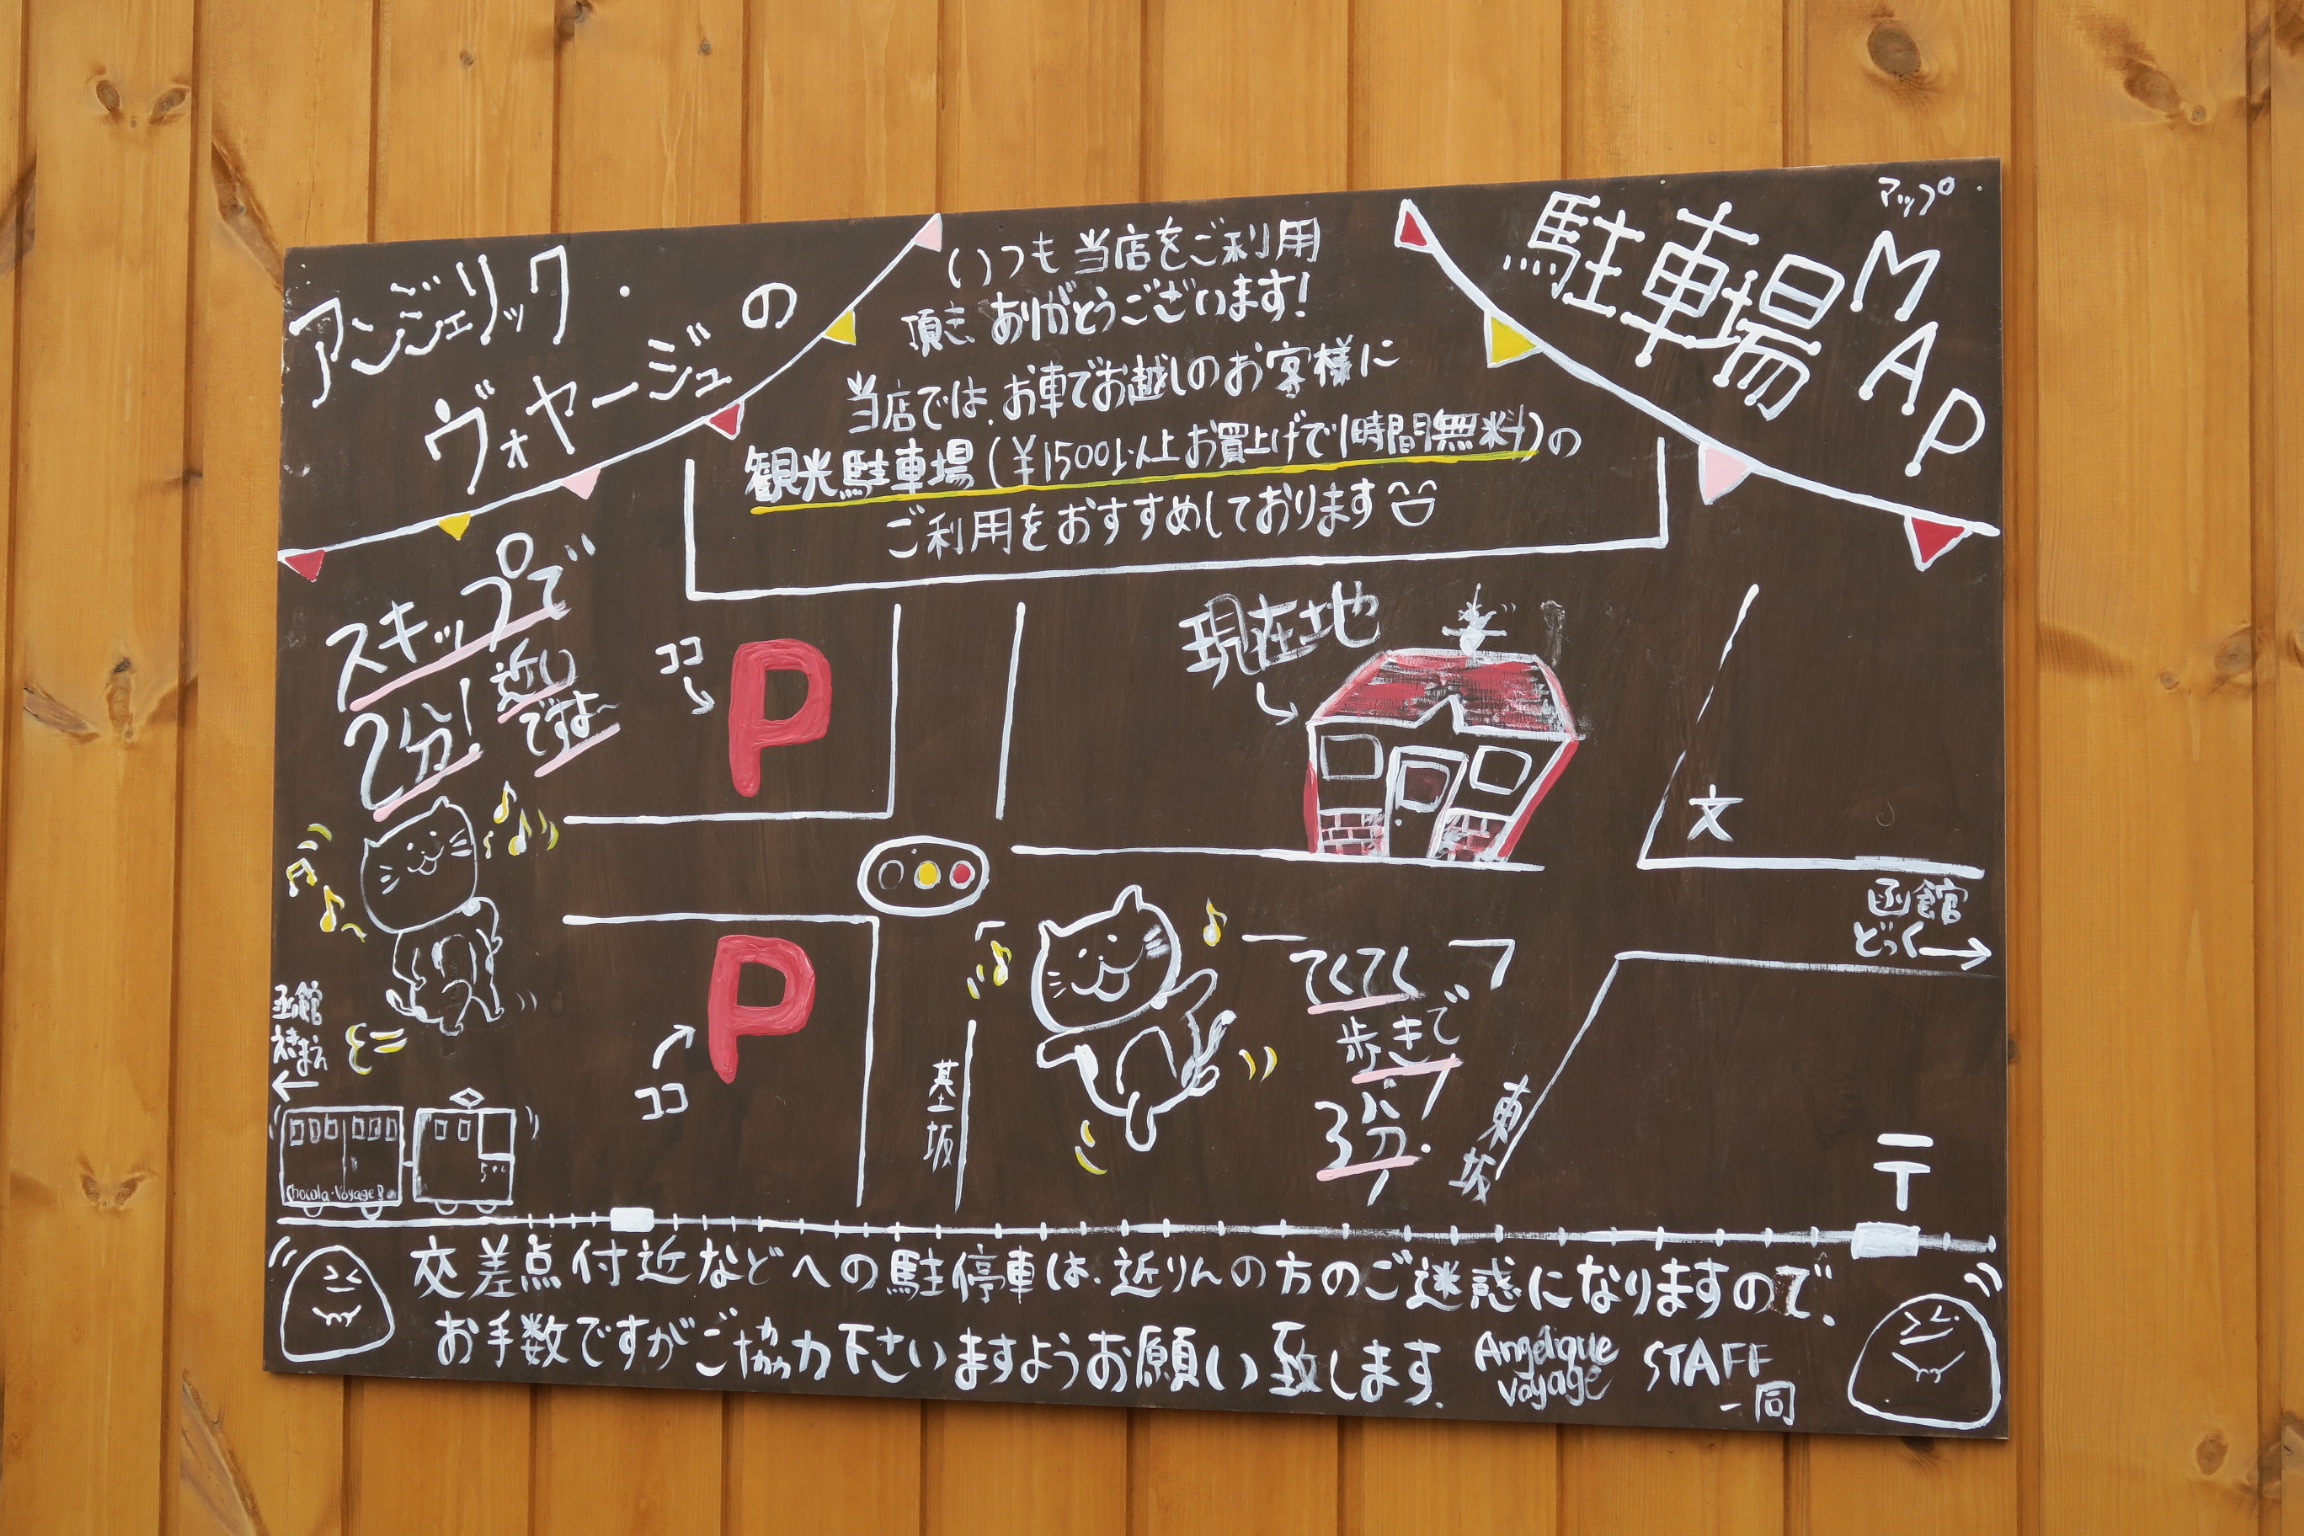 アンジェリック・
ヴォヤージュの
駐車場
マップ
MAP
いつも当店をご利用
頂き、ありがとうございます!
当店では、お車でお越しのお客様に
観光駐車場(¥1500以上お買上げで1時間無料)の
ご利用をおすすめしております
スキップで
2分!
近い
ですよ~
ココ
P
現在地
文
函館
どっく
P
ココ
函館
えきまえ
基坂
てくてく
歩きで
3分!
東坂
Chocola・Voyage
〒
交差点付近などへの駐停車は、近りんの方のご迷惑になりますので、
お手数ですがご協力下さいますようお願い致します。
Angelique
Voyage
STAFF
一同